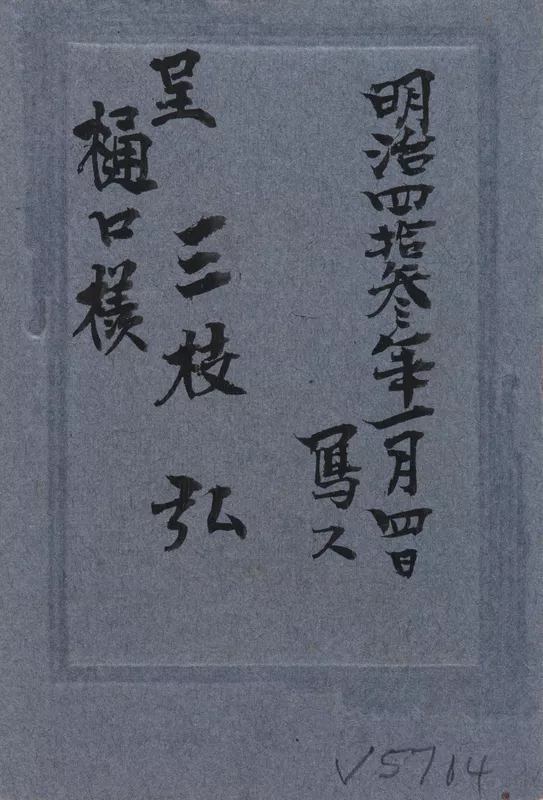 明治四拾参年一月四日
寫ス
呈
三枝弘
樋口様
V5714